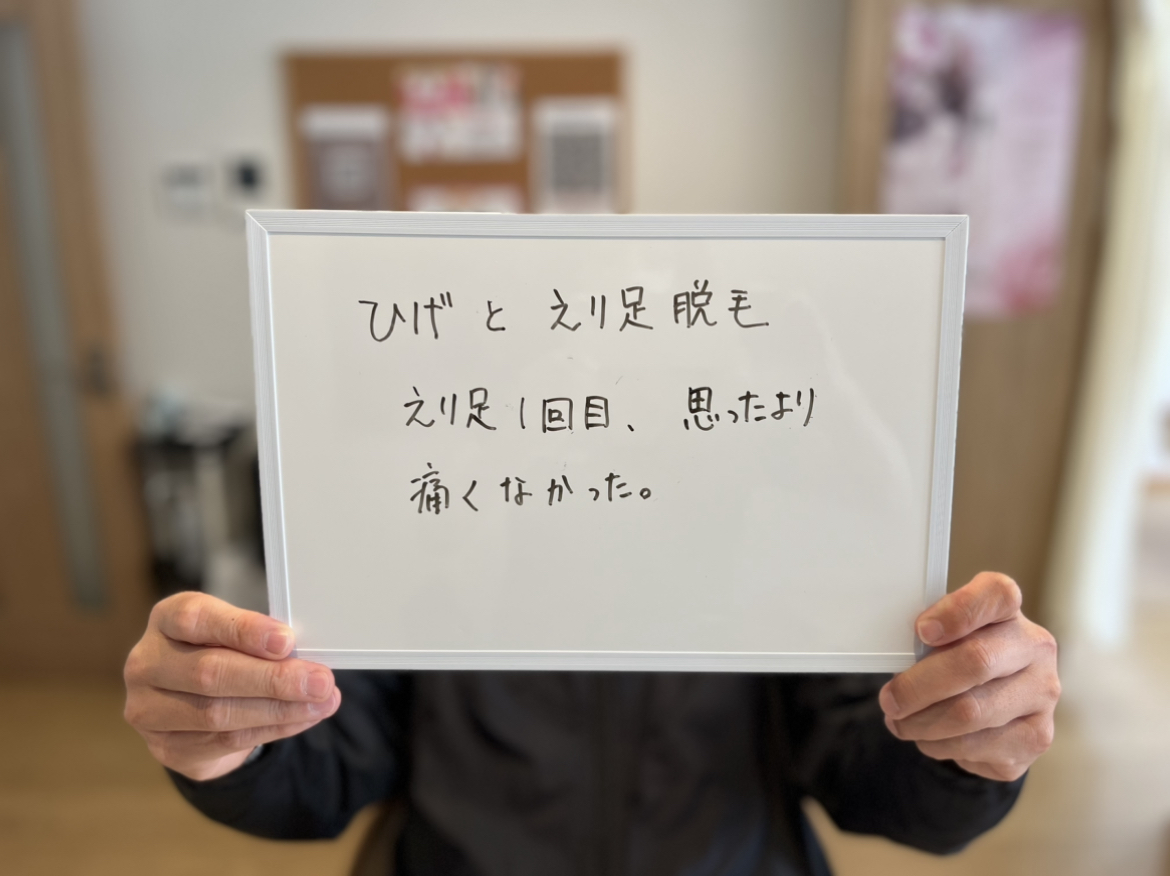 ひげと えり足脱毛
えり足1回目、思ったより
痛くなかった。